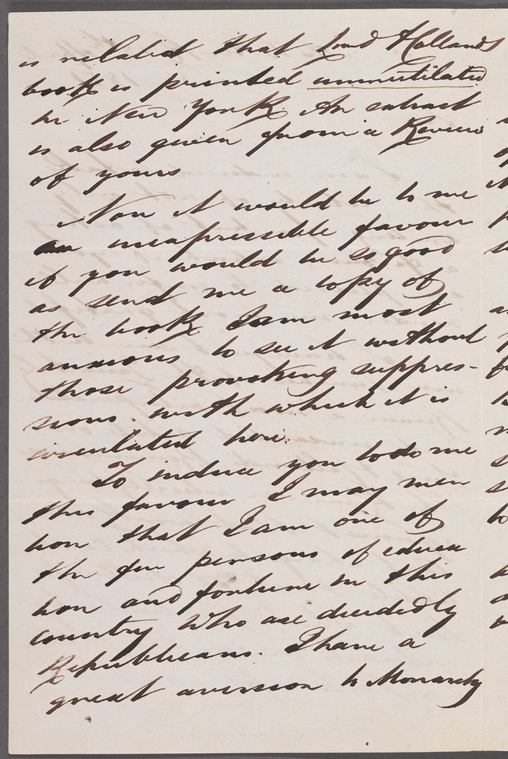 is related that Lord Hollands
book is printed unmutilated
in New York. An extract
is also given from a Review
of yours
Now it would be to me
an inexpressible favour
if you would be so good
as send me a copy of
the book. I am most
anxious to see it without
those provoking suppres-
sions, with which it is
circulated here.
To induce you to do me
this favour I may men
tion that I am one of
the few persons of educa
tion and fortune in this
country who are decidedly
Republicans. I have a
great aversion to Monarchy